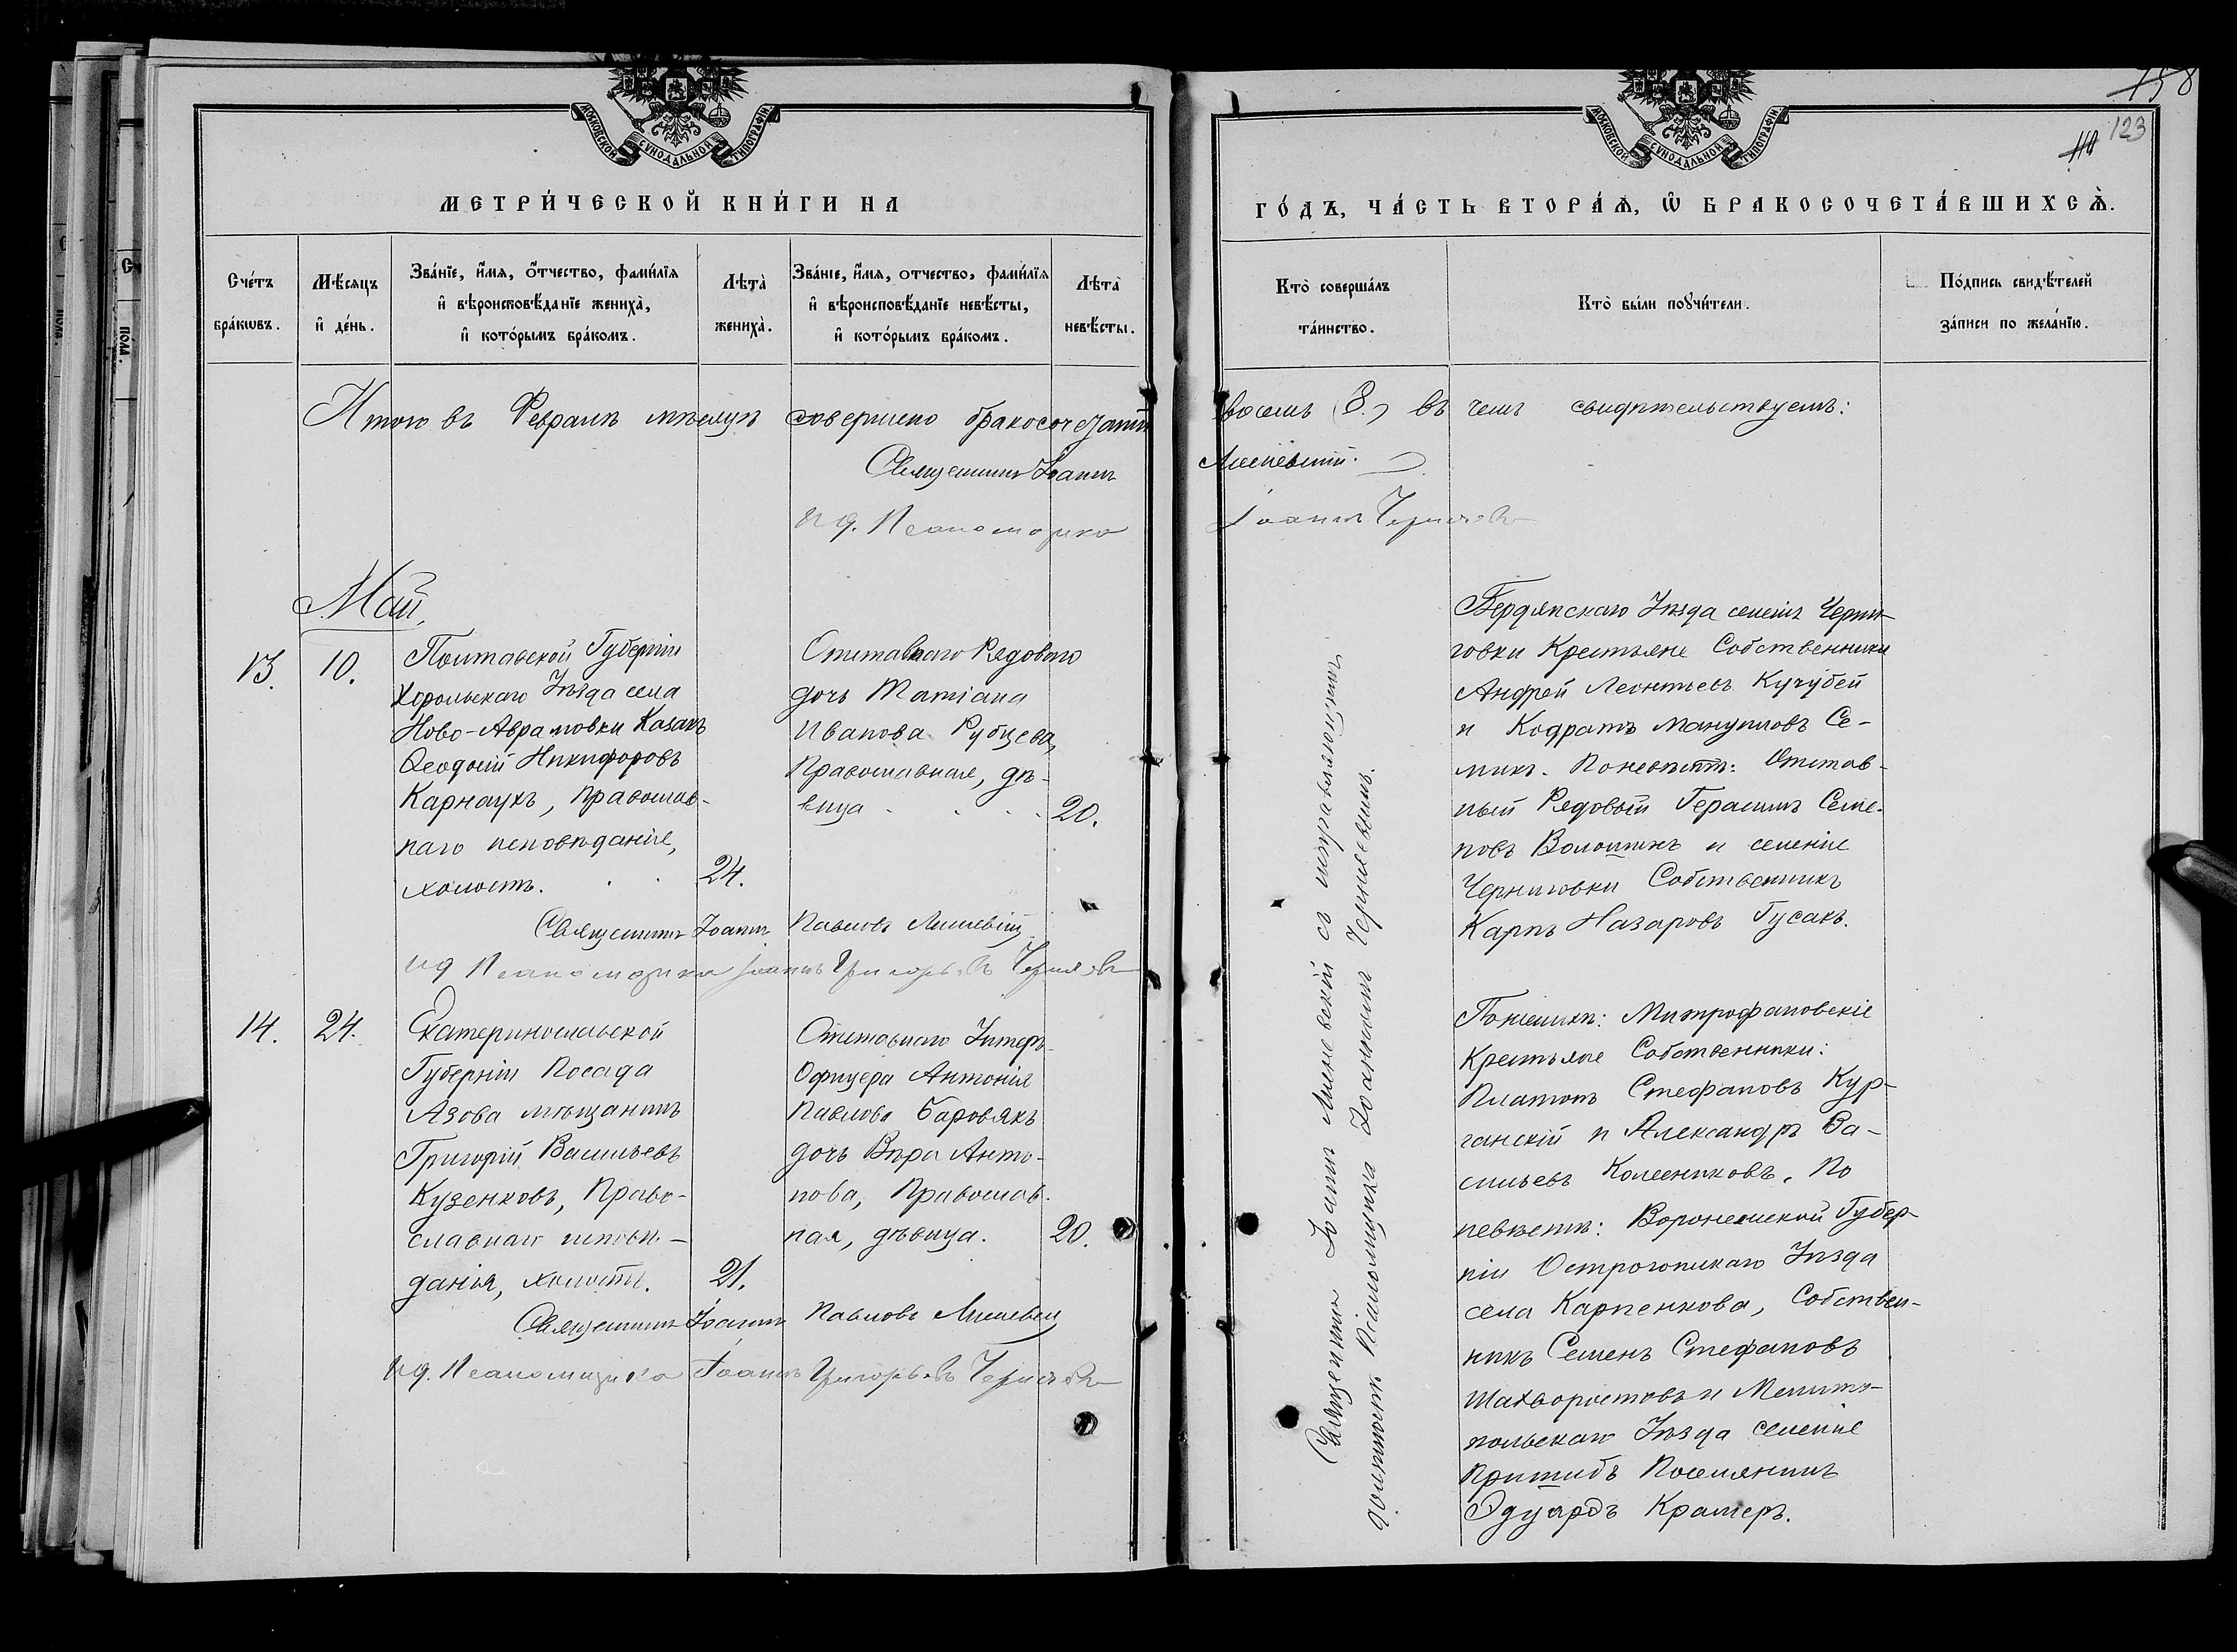 МОСКОВСКОЙ СѴНОДАЛЬНОЙ ТИПОГРАФІИ
МЕТРИ́ЧЕСКОЙ КНИ́ГИ НА
Сче́тъ бра́кωвъ.
Мѣ́сяцъ и҆ де́нь.
Зва́нїе, и҆́мя, ѻ҆́тчество, фами́лїя и҆ вѣроисповѣ́данїе жениха̀, и҆ кото́рымъ бра́комъ.
Лѣта̀ жениха̀.
Зва́нїе, и҆́мя, отчество, фами́лїя и҆ вѣроисповѣ́данїе невѣ́сты, и҆ кото́рымъ бра́комъ.
Лѣта̀ невѣ́сты.
Итого въ Февралѣ мѣсяцѣ совершено бракосочетаній
Священникъ Іоаннъ
ид. Псаломщика
Май,
13.
10.
Полтавской Губерніи
Хорольскаго Уѣзда села
Ново-Аврамовки Казакъ
Ѳеодосій Никифоровъ
Карнаухъ, православ-
наго исповѣданія,
холостъ.
24.
Отставнаго Рядового
дочь Татіана
Иванова Рубцева,
Православная, дѣ-
вица
20.
Священникъ Іоаннъ Павловъ Линевскій
ид Псаломщика Іоаннъ Григорьевъ Чернявскій
14.
24.
Екатеринославской
Губерніи Посада
Азова мѣщанинъ
Григорій Васильевъ
Кузенковъ, Право-
славнаго исповѣ-
данія, холостъ.
21.
Отставнаго Унтеръ-
Офицера Антонія
Павлова Боровякъ
дочь Вѣра Анто-
нова, Православ-
ная, дѣвица.
20.
Священникъ Іоаннъ Павловъ Линевскій
ид. Псаломщика Іоаннъ Григорьевъ Чернявскій
158
110
123
МОСКОВСКОЙ СѴНОДАЛЬНОЙ ТИПОГРАФІИ
ГО́ДЪ, ЧА́СТЬ ВТОРА́Ѧ, Ѡ҆ БРАКОСОЧЕТА́ВШИХСѦ̀.
Кто̀ соверша́лъ та́инство.
Кто̀ бы́ли поꙋчи́тели.
По́дпись свидѣ́телей за́писи по жела́нїю.
восемь (8.) въ чемъ свидѣтельствуемъ:
Линевскій.
Іоаннъ Чернявскій
Священникъ Іоаннъ Линевскій съ исправляющимъ
должность Псаломщика Іоанномъ Чернявскимъ.
Бердянскаго Уѣзда селенія Черни-
говки Крестьяне Собственники
Андрей Леонтьевъ Кучубей
и Кодратъ Мануиловъ Се-
микъ. По невѣстѣ: Отстав-
ный Рядовый Герасимъ Семе-
новъ Волошинъ и селенія
Черниговки Собственникъ
Карпъ Назаровъ Гусакъ.
По женихѣ: Митрофановскіе
Крестьяне Собственники:
Платонъ Стефановъ Кур-
ганскій и Александръ Ва-
сильевъ Колесниковъ. По
невѣстѣ: Воронежской Губер-
ніи Острогожскаго Уѣзда
села Карпенкова, Собствен-
никъ Семенъ Стефановъ
Шахворостовъ и Мелито-
польскаго Уѣзда селенія
Пришибъ Поселянинъ
Эдуардъ Крамеръ.